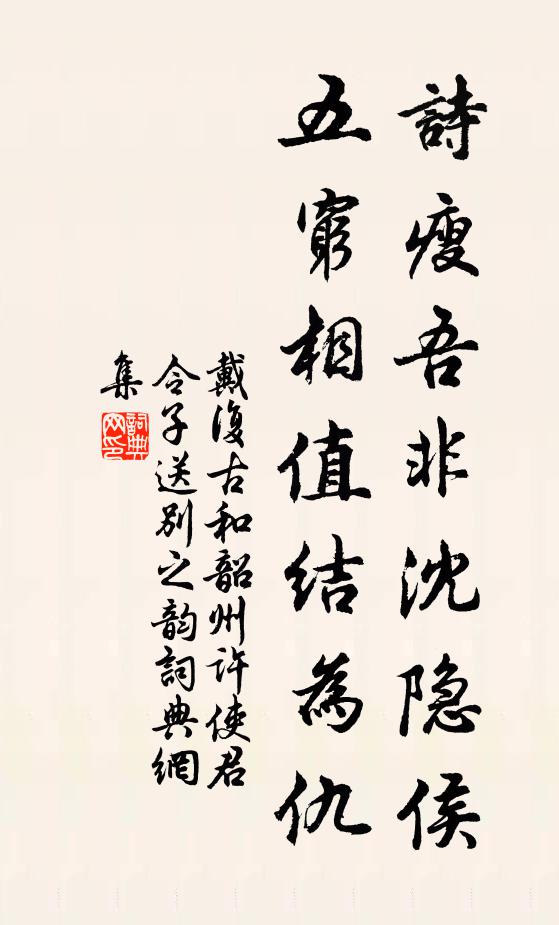 詩瘦吾非沈隐侯
五窮相值结為仇
戴復古和韶州许使君
令子送别之韵詞典網
集
詞典
网印